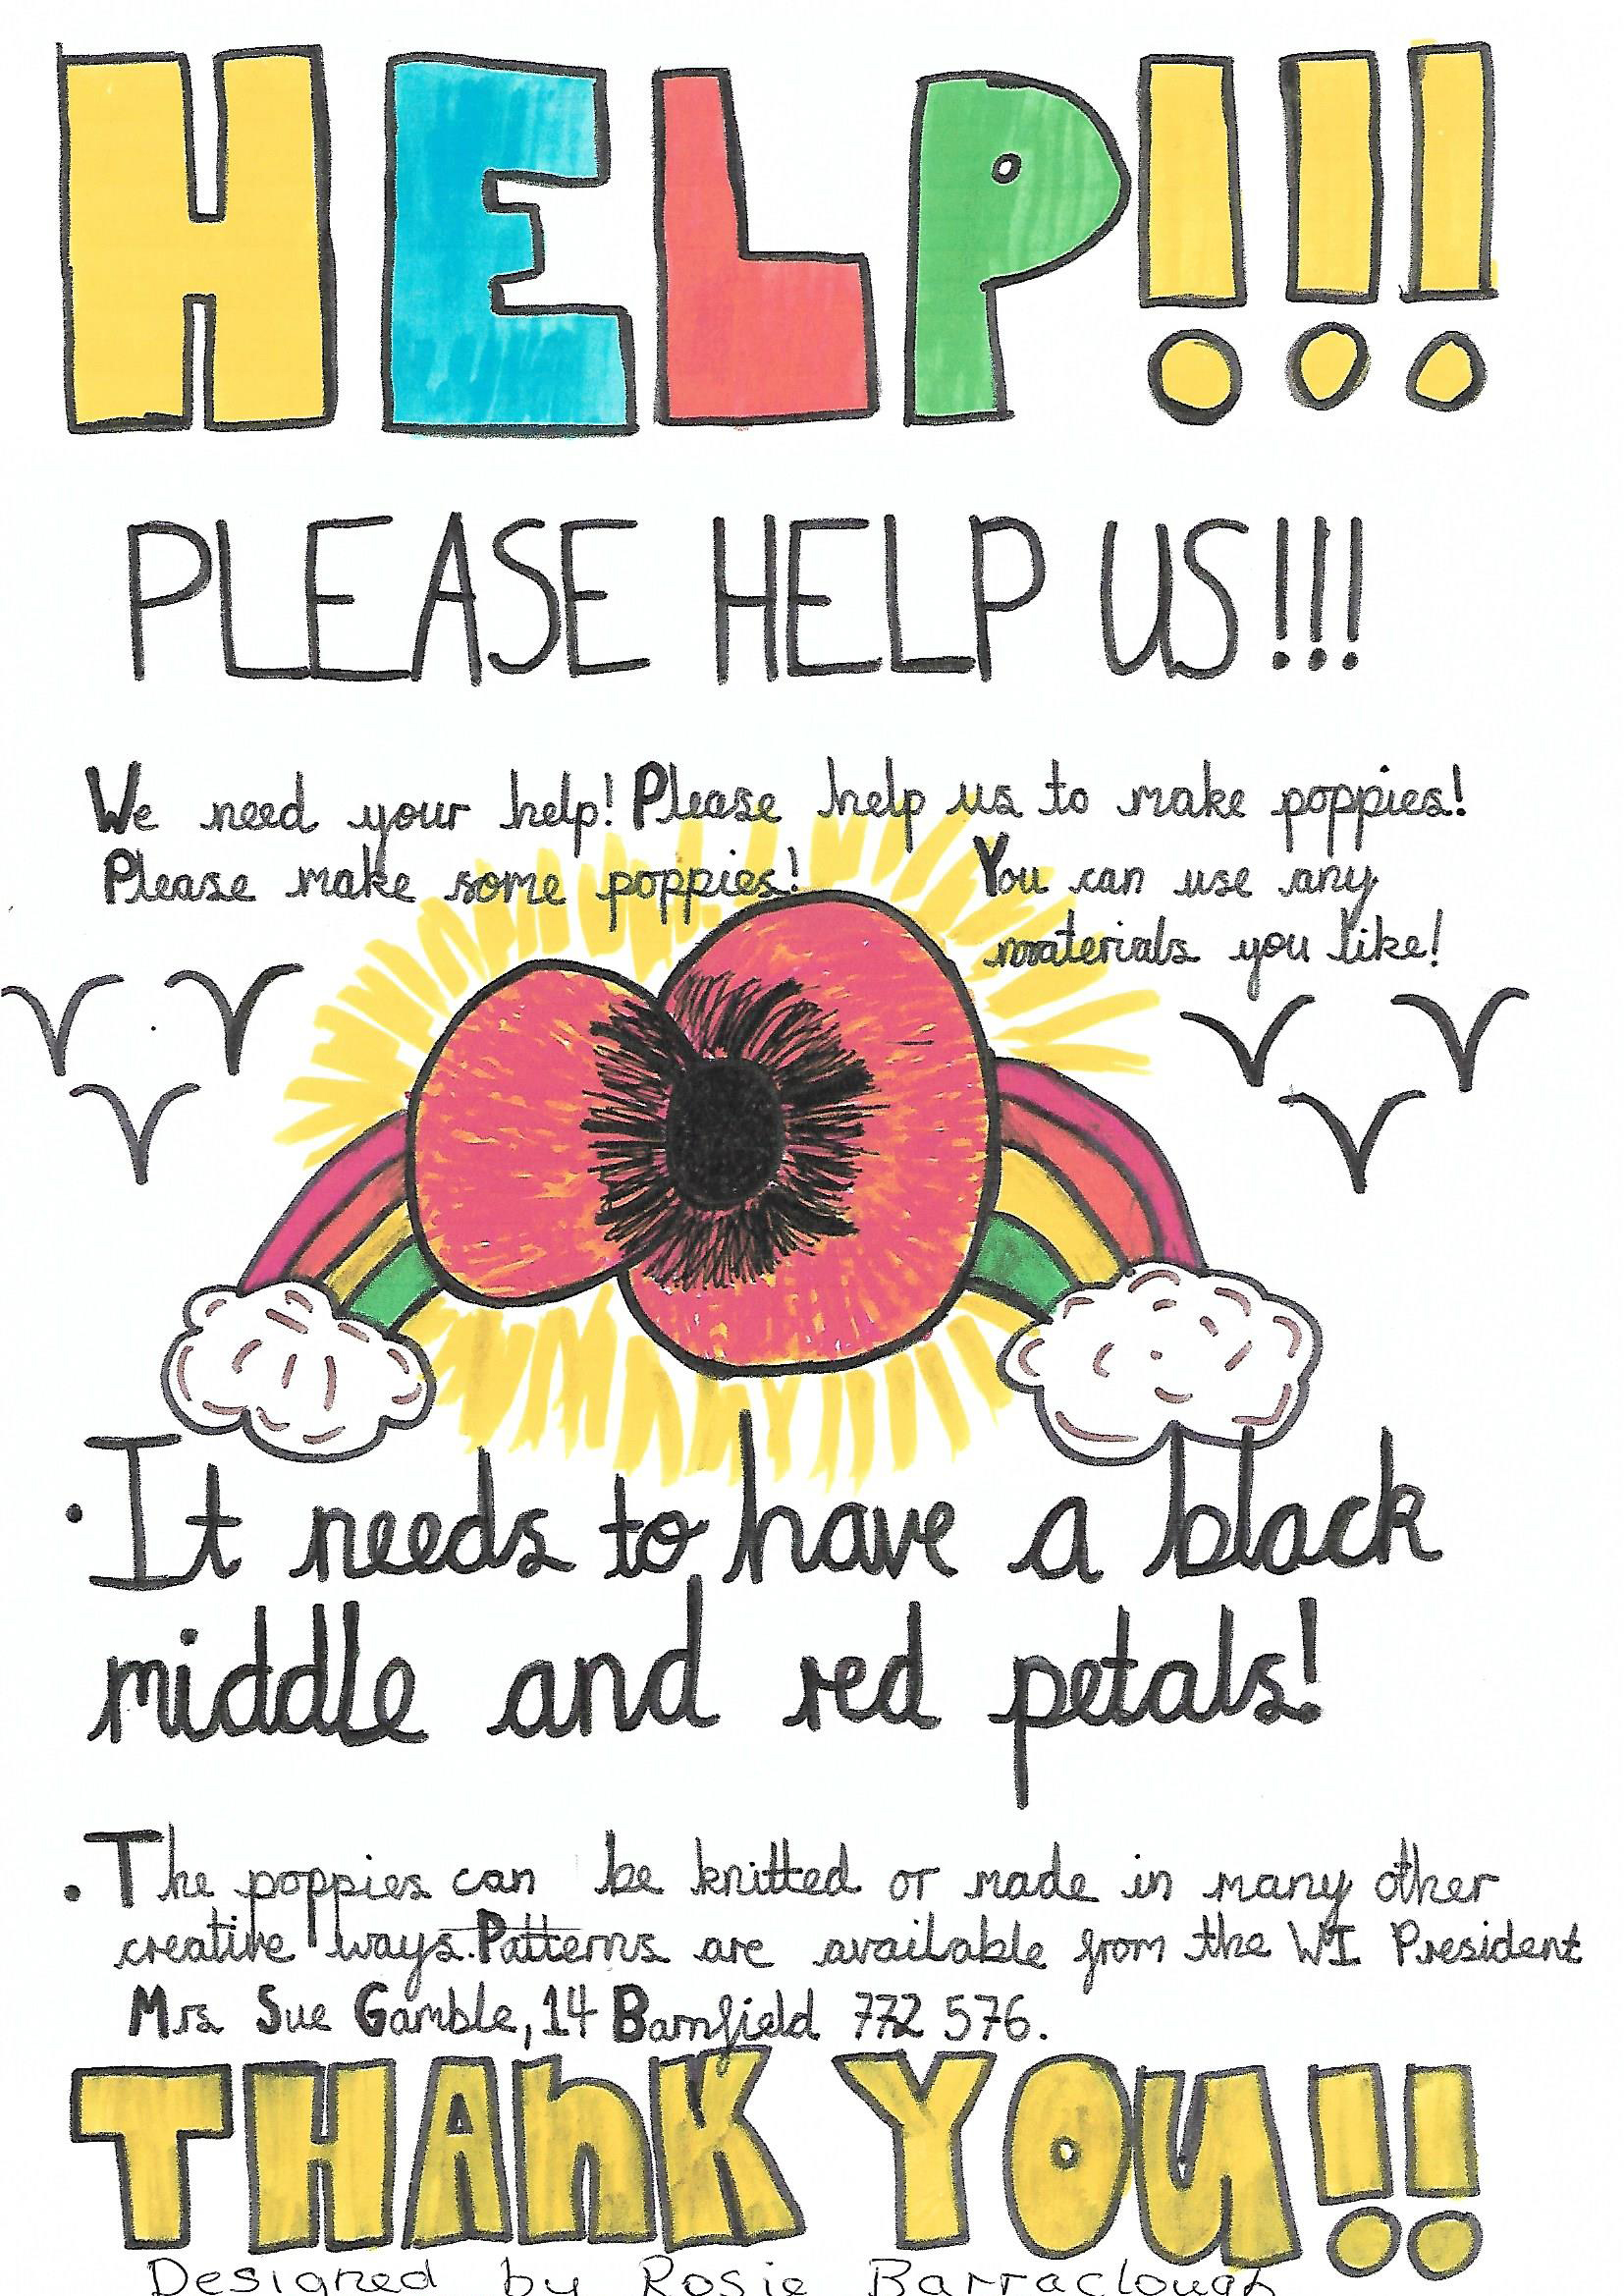 HELP!!!
PLEASE HELP US!!!
We need your help! Please help us to make poppies!
Please make some poppies! You can use any
materials you like!
• It needs to have a black
middle and red petals!
• The poppies can be knitted or made in many other
creative ways. Patterns are available from the WI President
Mrs Sue Gamble, 14 Barnfield 772 576.
THANK YOU!!
Designed by Rosie Barraclough